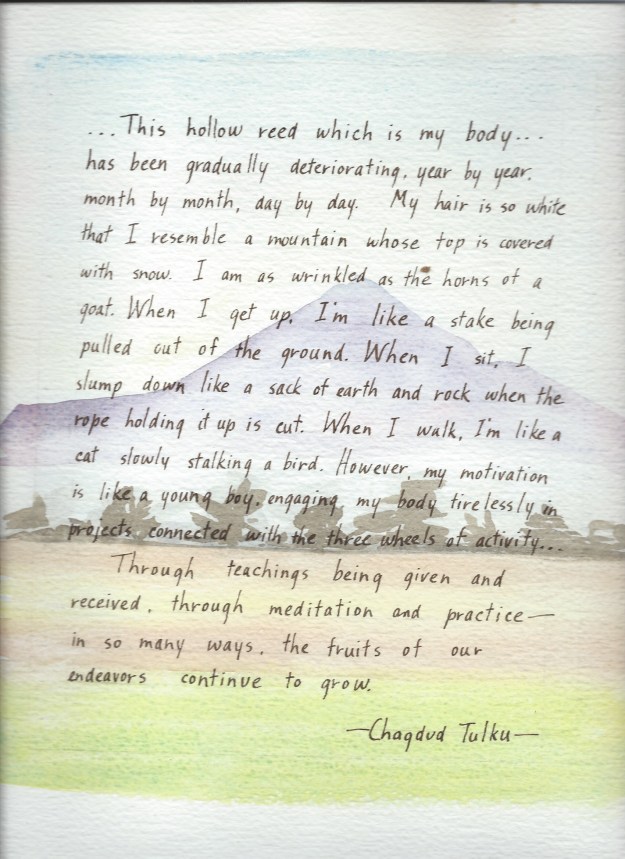 ...This hollow reed which is my body...
has been gradually deteriorating, year by year.
month by month, day by day. My hair is so white
that I resemble a mountain whose top is covered
with snow. I am as wrinkled as the horns of a
goat. When I get up, I'm like a stake being
pulled out of the ground. When I sit, I
slump down like a sack of earth and rock when the
rope holding it up is cut. When I walk, I'm like a
cat slowly stalking a bird. However, my motivation
is like a young boy, engaging my body tirelessly in
projects connected with the three wheels of activity...
Through teachings being given and
received, through meditation and practice—
in so many ways, the fruits of our
endeavors continue to grow.
—Chagdud Tulku—